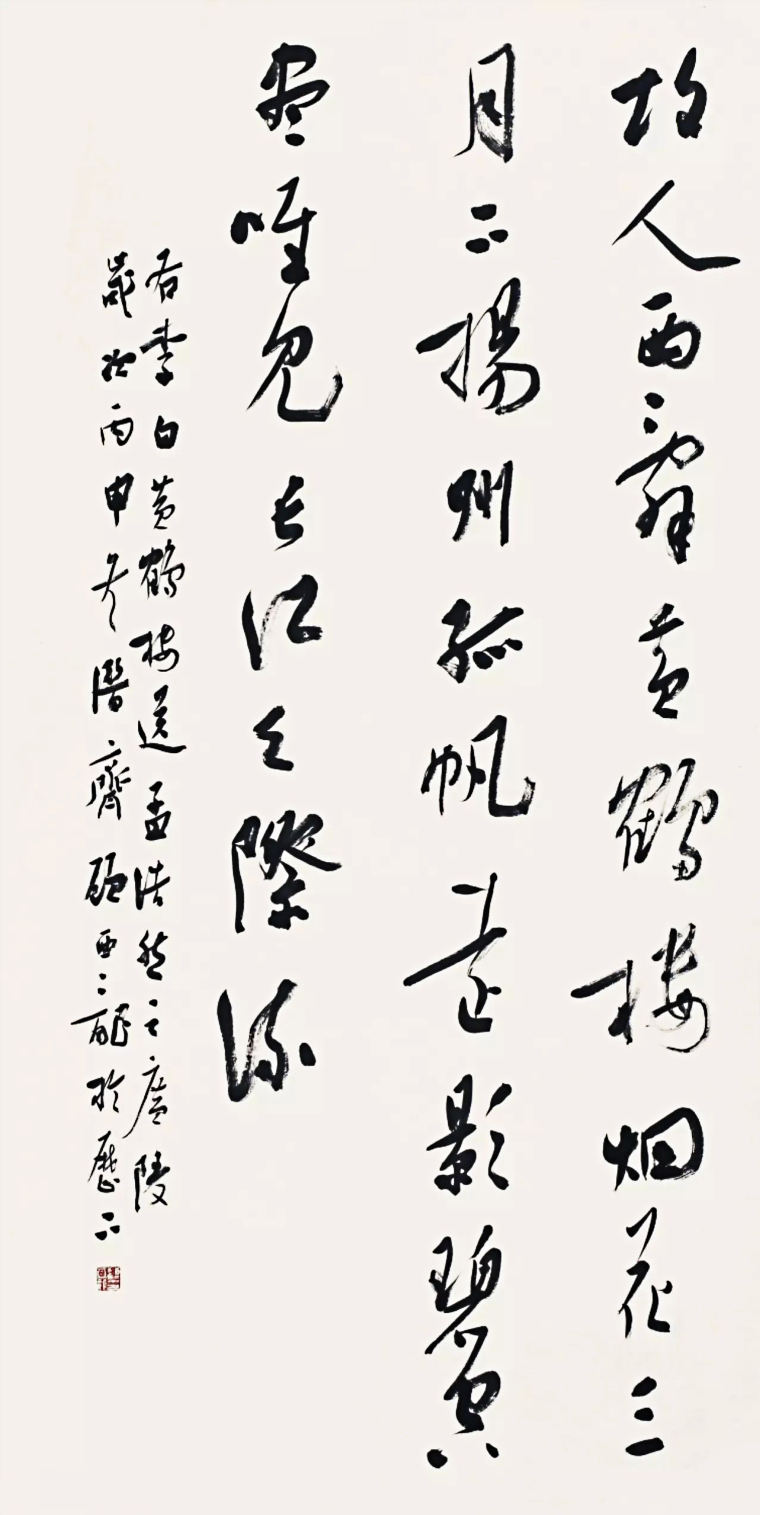 故人西辭黄鶴樓烟花三
月下揚州孤帆遠影碧空
盡唯見長江天際流
右李白黄鶴樓送孟浩然之廣陵
歲次丙申冬潛齋顧亞龍於歷下